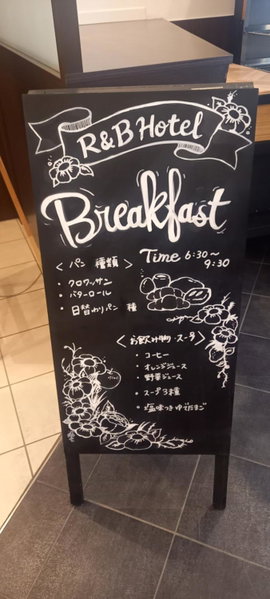 R&B Hotel
Breakfast
Time 6:30〜
9:30
< パン 種類 >
・クロワッサン
・バターロール
・日替わりパン 種
< お飲み物・スープ >
・コーヒー
・オレンジジュース
野菜ジュース
・スープ3種
・塩味つきゆでたまご